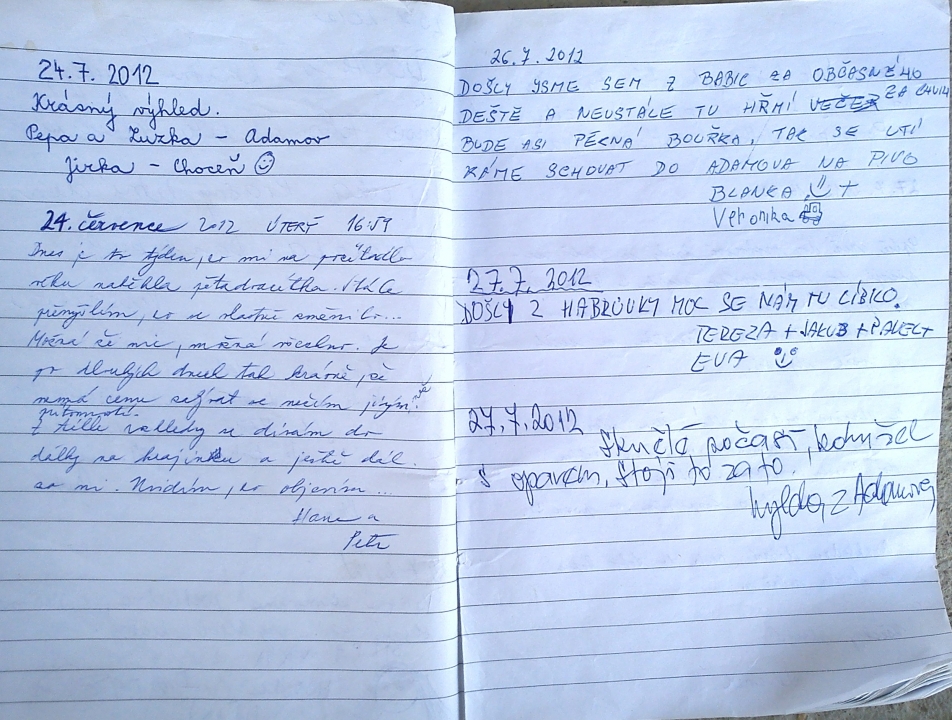 24.7. 2012
Krásný výhled.
Pepa a Zuzka – Adamov
Jirka – Choceň
24. července 2012 ÚTERÝ 16:59
Dnes je to týden, co mi na počítadle
věku naběhla pětadvacítka. Stále
přemýšlím, co se vlastně změnilo...
Možná že nic, možná všechno. Je
po dlouhých dnech tak krásně, že
nemá cenu se než
přítomností.
Z téhle vyhledy se dívám do
dálky na krajinku a ještě dál.
co mi . Uvidím, co objevím...
Hana a
Petr
26.7.2012
DOŠLY JSME SEM Z BABIC ZA OBČASNÉHO
DEŠTĚ A NEUSTÁLE TU HŘMÍ VEČER ZA CHVILI
BUDE ASI PĚKNÁ BOUŘKA, TAK SE UTÍ
KÁME SCHOVAT DO ADAMOVA NA PIVO
BLANKA +
Veronika
27.7. 2012
DOŠLY Z HABRŮVKY MOC SE NÁM TU LÍBILO.
TEREZA + JAKUB + PAVEL +
EVA
27.7.2012
Skvělé počasí,
s oparem, stojí to za to.
z Adamova